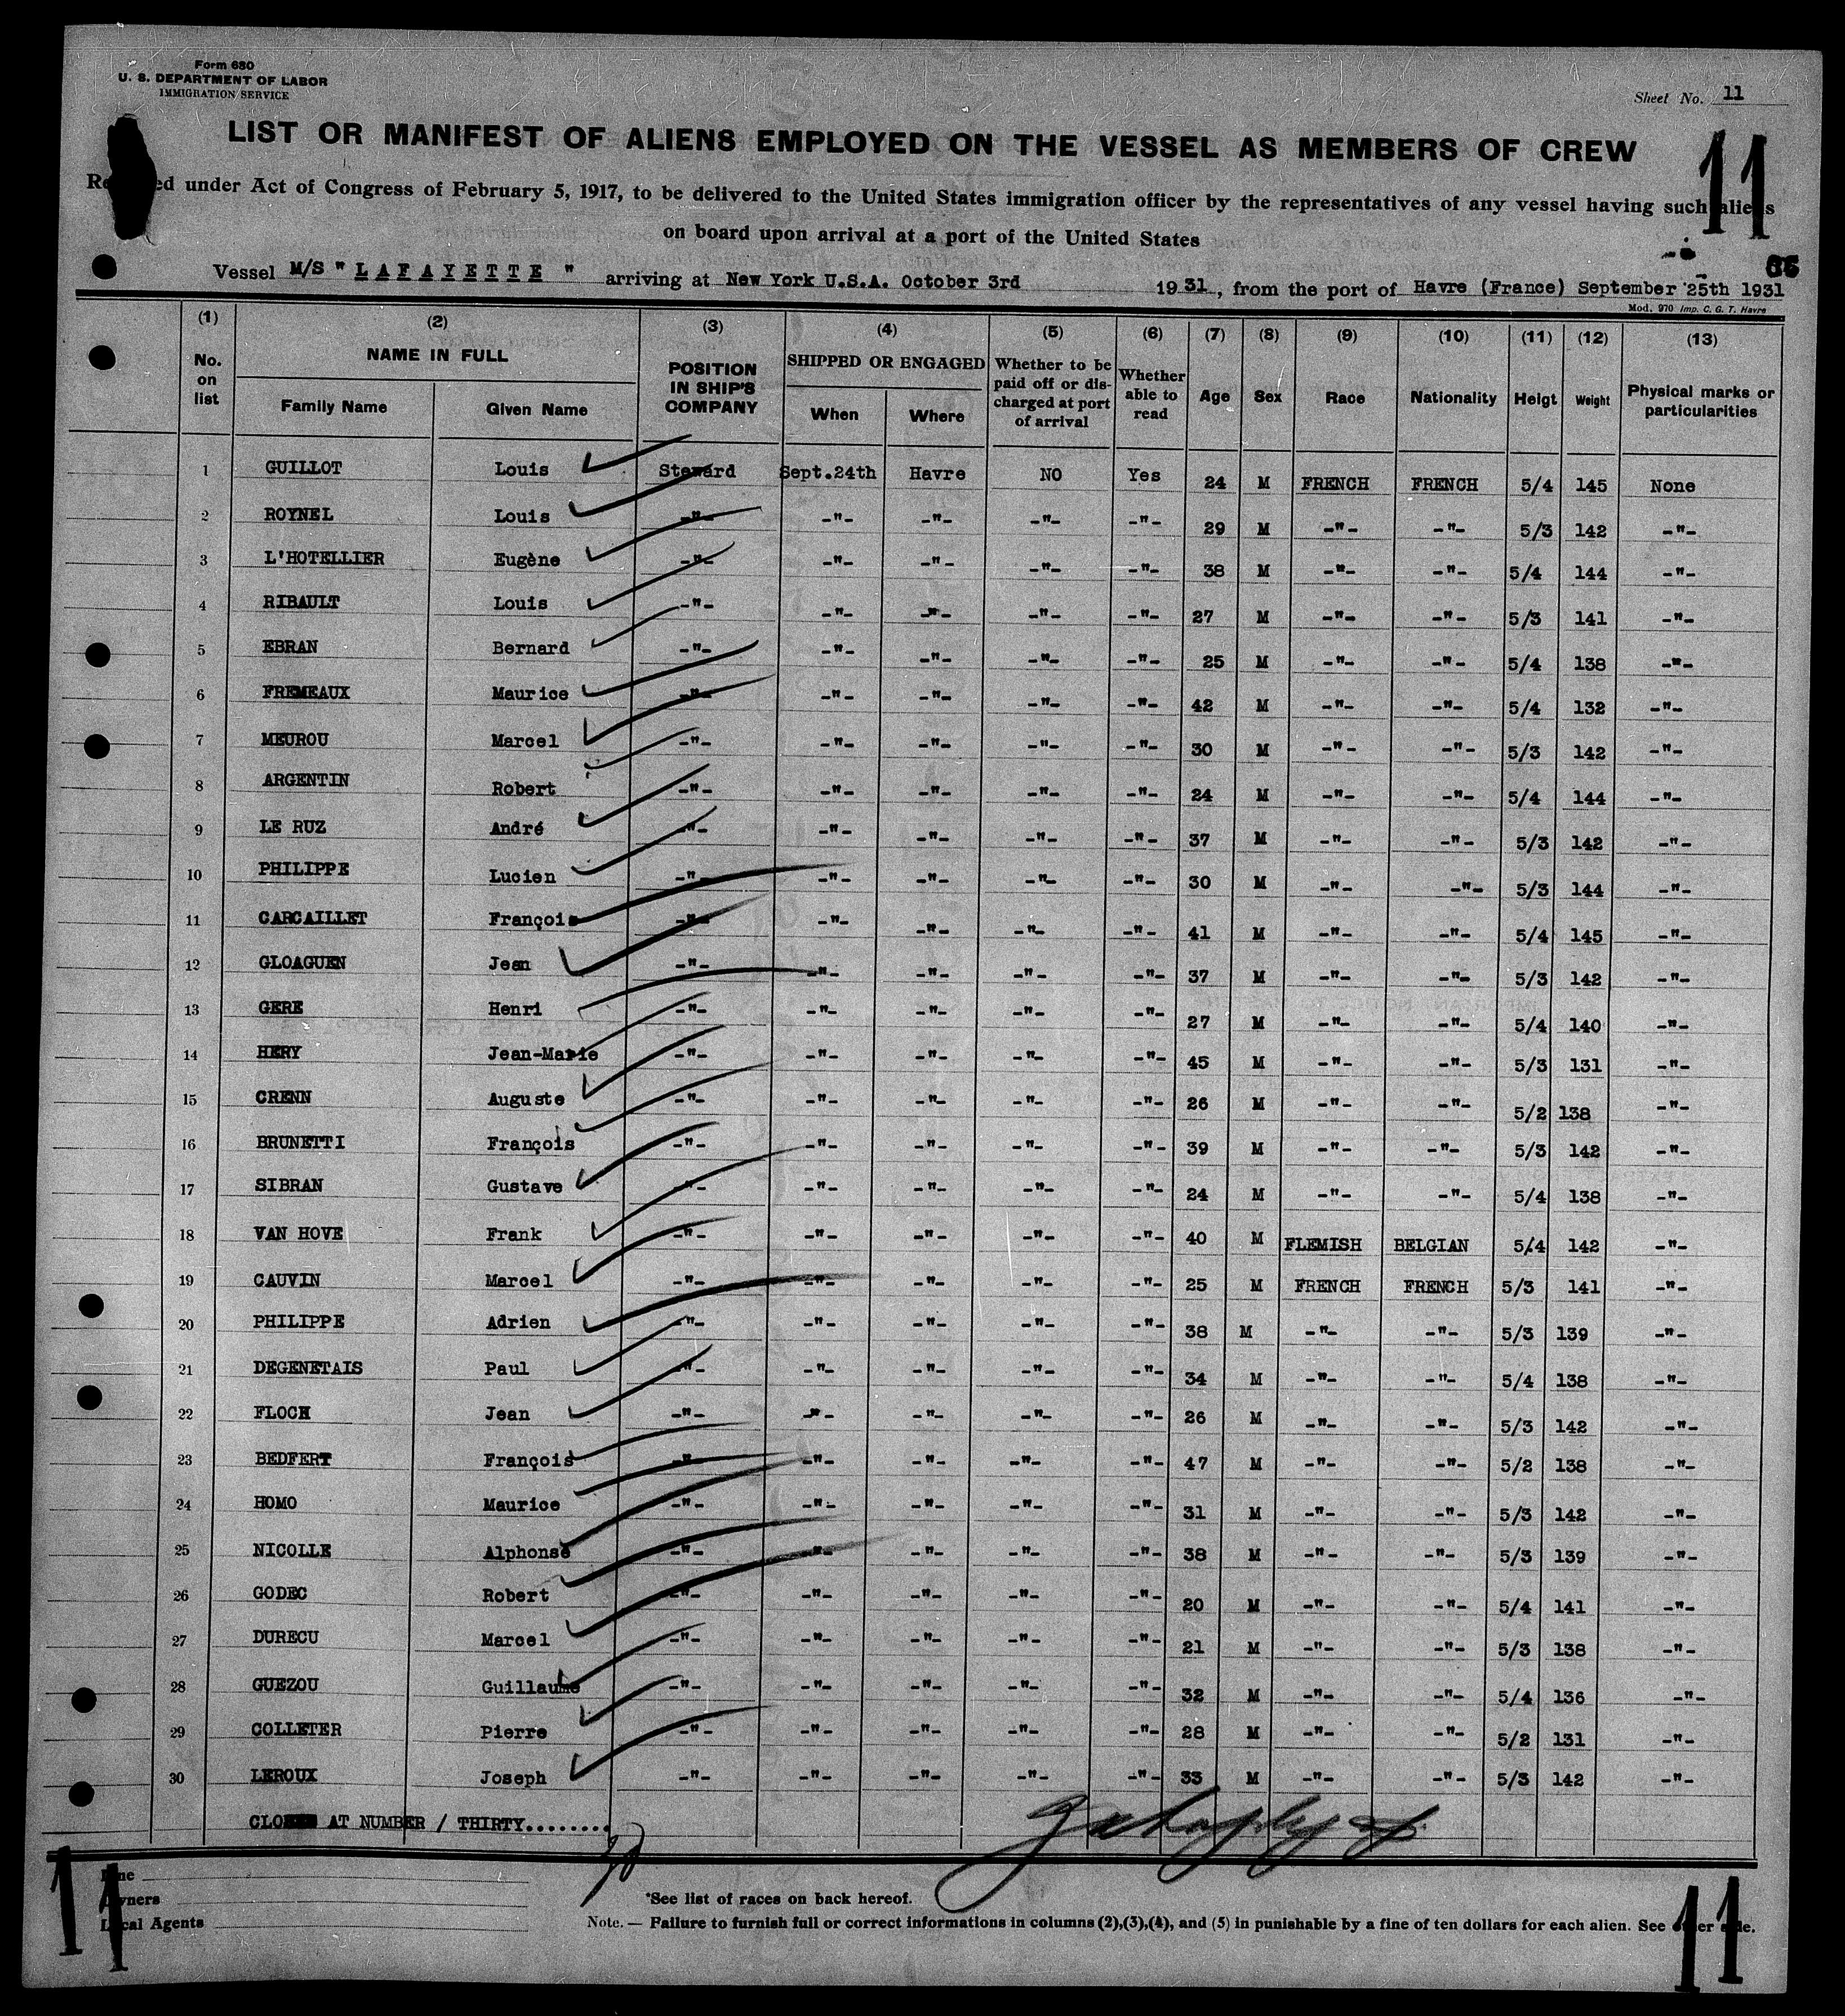 Form 680
U. S. DEPARTMENT OF LABOR
IMMIGRATION SERVICE
Sheet No. 11
LIST OR MANIFEST OF ALIENS EMPLOYED ON THE VESSEL AS MEMBERS OF CREW
11
under Act of Congress of February 5, 1917, to be delivered to the United States immigration officer by the representatives of any vessel having such aliens
on board upon arrival at a port of the United States
Vessel M/S " LAFAYETTE " arriving at New York U.S.A. October 3rd 1931, from the port of Havre (France) September 25th 1931
Mod. 970 Imp. C. G. T. Havre
(1) (2) (3) (4) (5) (6) (7) (8) (9) (10) (11) (12) (13)
No. on list NAME IN FULL Family Name Given Name POSITION IN SHIP'S COMPANY SHIPPED OR ENGAGED When Where Whether to be paid off or discharged at port of arrival Whether able to read Age Sex Race Nationality Heigt Weight Physical marks or particularities
1 GUILLOT Louis Steward Sept.24th Havre NO Yes 24 M FRENCH FRENCH 5/4 145 None
2 ROYNEL Louis -"- -"- -"- -"- -"- 29 M -"- -"- 5/3 142 -"-
3 L'HOTELLIER Eugène -"- -"- -"- -"- -"- 38 M -"- -"- 5/4 144 -"-
4 RIBAULT Louis -"- -"- -"- -"- -"- 27 M -"- -"- 5/3 141 -"-
5 EBRAN Bernard -"- -"- -"- -"- -"- 25 M -"- -"- 5/4 138 -"-
6 FREMEAUX Maurice -"- -"- -"- -"- -"- 42 M -"- -"- 5/4 132 -"-
7 MEUROU Marcel -"- -"- -"- -"- -"- 30 M -"- -"- 5/3 142 -"-
8 ARGENTIN Robert -"- -"- -"- -"- -"- 24 M -"- -"- 5/4 144 -"-
9 LE RUZ André -"- -"- -"- -"- -"- 37 M -"- -"- 5/3 142 -"-
10 PHILIPPE Lucien -"- -"- -"- -"- -"- 30 M -"- -"- 5/3 144 -"-
11 CARCAILLET François -"- -"- -"- -"- -"- 41 M -"- -"- 5/4 145 -"-
12 GLOAGUEN Jean -"- -"- -"- -"- -"- 37 M -"- -"- 5/3 142 -"-
13 GERE Henri -"- -"- -"- -"- -"- 27 M -"- -"- 5/4 140 -"-
14 HERY Jean-Marie -"- -"- -"- -"- -"- 45 M -"- -"- 5/3 131 -"-
15 CRENN Auguste -"- -"- -"- -"- -"- 26 M -"- -"- 5/2 138 -"-
16 BRUNETTI François -"- -"- -"- -"- -"- 39 M -"- -"- 5/3 142 -"-
17 SIBRAN Gustave -"- -"- -"- -"- -"- 24 M -"- -"- 5/4 138 -"-
18 VAN HOVE Frank -"- -"- -"- -"- -"- 40 M FLEMISH BELGIAN 5/4 142 -"-
19 CAUVIN Marcel -"- -"- -"- -"- -"- 25 M FRENCH FRENCH 5/3 141 -"-
20 PHILIPPE Adrien -"- -"- -"- -"- -"- 38 M -"- -"- 5/3 139 -"-
21 DEGENETAIS Paul -"- -"- -"- -"- -"- 34 M -"- -"- 5/4 138 -"-
22 FLOCH Jean -"- -"- -"- -"- -"- 26 M -"- -"- 5/3 142 -"-
23 BEDFERT François -"- -"- -"- -"- -"- 47 M -"- -"- 5/2 138 -"-
24 HOMO Maurice -"- -"- -"- -"- -"- 31 M -"- -"- 5/3 142 -"-
25 NICOLLE Alphonse -"- -"- -"- -"- -"- 38 M -"- -"- 5/3 139 -"-
26 GODEC Robert -"- -"- -"- -"- -"- 20 M -"- -"- 5/4 141 -"-
27 DURECU Marcel -"- -"- -"- -"- -"- 21 M -"- -"- 5/3 138 -"-
28 GUEZOU Guillaume -"- -"- -"- -"- -"- 32 M -"- -"- 5/4 136 -"-
29 COLLETER Pierre -"- -"- -"- -"- -"- 28 M -"- -"- 5/2 131 -"-
30 LEROUX Joseph -"- -"- -"- -"- -"- 33 M -"- -"- 5/3 142 -"-
AT NUMBER / THIRTY........
30
Owners
Local Agents
*See list of races on back hereof.
Note. — Failure to furnish full or correct informations in columns (2),(3),(4), and (5) in punishable by a fine of ten dollars for each alien. See other side.
11
11